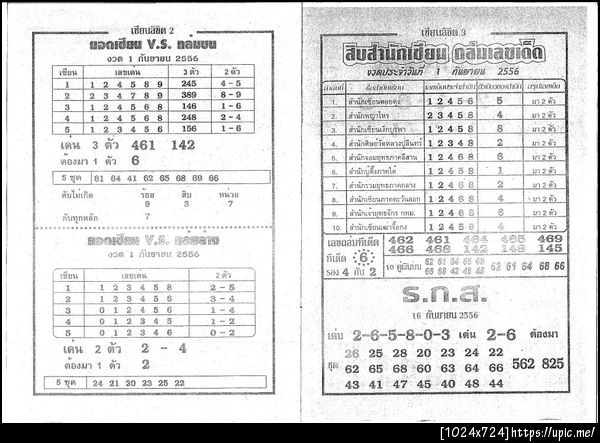 เซียนลิขิต 2
ยอดเซียน V.S. ถล่มบน
งวด 1 กันยายน 2556
เซียน เลขเด่น 3 ตัว 2 ตัว
1 1 2 4 5 8 9 245 4-5
2 2 3 4 7 8 9 389 8-9
3 1 2 4 5 6 8 146 1-6
4 1 2 4 6 8 9 248 2-4
5 1 2 4 5 6 8 156 1-6
เด่น 3 ตัว 461 142
ต้องมา 1 ตัว 6
5 ชุด 61 64 41 62 65 68 69 66
ดับไม่เกิด ร้อย สิบ หน่วย
9 3 7
ดับทุกหลัก 7
ยอดเซียน V.S. ถล่มล่าง
งวด 1 กันยายน 2556
เซียน เลขเด่น 2 ตัว
1 1 2 3 4 5 8 2-5
2 1 2 3 4 5 6 3-4
3 0 1 2 4 5 6 1-4
4 0 1 2 4 5 6 1-2
5 0 1 2 3 4 6 0-2
เด่น 2 ตัว 2 - 4
ต้องมา 1 ตัว 2
5 ชุด 24 21 20 23 25 22
เซียนลิขิต 3
สิบสำนักเซียน ถล่มเลขเด็ด
งวดประจำวันที่ 1 กันยายน 2556
1. 1 2 4 5 6 5 มา 2 ตัว
2. สำนักพญาโหร 2 3 4 5 8 4 มา 2 ตัว
3. สำนักเซียนเจ้าบูรพา 1 2 4 6 8 1 มา 2 ตัว
4. 1 2 3 4 6 4 มา 2 ตัว
5. สำนักจอมยุทธภาคอีสาน 1 2 4 6 8 6 มา 2 ตัว
6. สำนักปู่ตั้งภาคใต้ 1 2 4 5 6 1 มา 2 ตัว
7. สำนักรวมยุทธภาคกลาง 1 2 4 6 8 2 มา 2 ตัว
8. สำนักเซียนภาคตะวันออก 1 2 4 6 8 4 มา 2 ตัว
9. สำนักเจ้ายุทธจักร กทม. 1 2 4 5 6 6 มา 2 ตัว
10. 1 2 4 5 6 4 มา 2 ตัว
เลขถล่มทีเด็ด 462 461 464 465 469
466 468 142 148 145
ทีเด็ด 6
รอง 4 กับ 2
10 คู่เงินบน 62 61 64 65 69
66 68 42 48 45
62 61 64 68 66
ธ.ก.ส.
16 กันยายน 2556
เด่น 2-6-5-8-0-3 เด่น 2-6 ต้องมา
ชุด 26 25 28 20 23 24 22
62 65 68 60 63 64 66
43 41 47 45 40 48 44
562 825
[1024x724]https://upic.me/